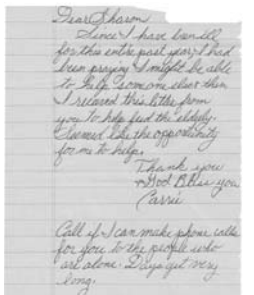 Dear Sharon
Since I have been ill
for this entire past year, I had
been praying I might be able
to help someone else then
I received this letter from
you to help feed the elderly.
Seemed like the opportunity
for me to help.
Thank you
+ God Bless you
Carrie
Call if I can make phone calls
for you to the people who
are alone. Days get very
long.